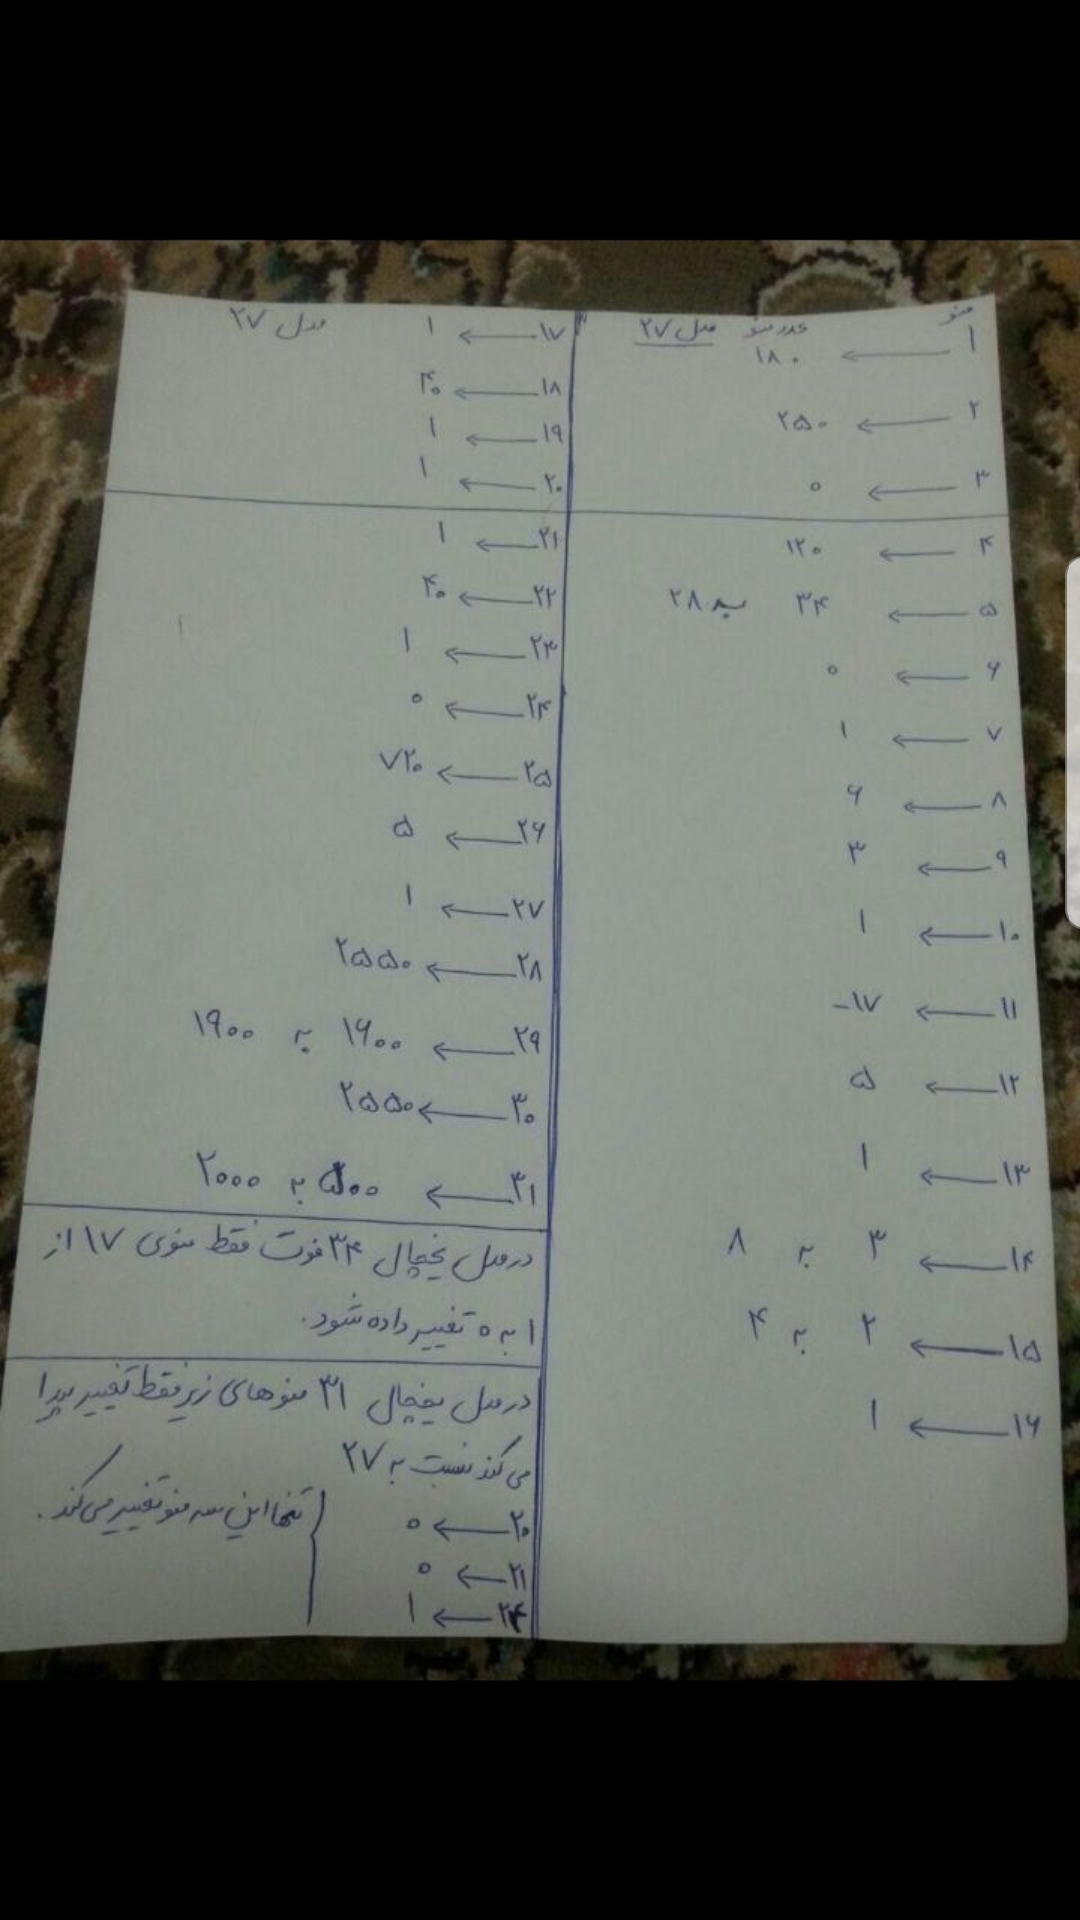 منو عدد منو مدل ۲۷
۱ ← ۱۸۰
۲ ← ۲۵۰
۳ ← ۰
۴ ← ۱۲۰
۵ ← ۳۴ به ۲۸
۶ ← ۰
۷ ← ۱
۸ ← ۶
۹ ← ۳
۱۰ ← ۱
۱۱ ← ۱۷-
۱۲ ← ۵
۱۳ ← ۱
۱۴ ← ۳ به ۸
۱۵ ← ۲ به ۴
۱۶ ← ۱
۱۷ ← ۱ مدل ۲۷
۱۸ ← ۴۰
۱۹ ← ۱
۲۰ ← ۱
۲۱ ← ۱
۲۲ ← ۴۰
۲۳ ← ۱
۲۴ ← ۰
۲۵ ← ۷۲۰
۲۶ ← ۵
۲۷ ← ۱
۲۸ ← ۲۵۵۰
۲۹ ← ۱۶۰۰ به ۱۹۰۰
۳۰ ← ۲۵۵۰
۳۱ ← ۵۰۰ به ۲۰۰۰
درمدل یخچال ۳۴ فوت فقط منوی ۱۷ از
۱ به ۰ تغییر داده شود.
درمدل یخچال ۳۱ منوهای زیر فقط تغییر پیدا
می کند نسبت به ۲۷
۲۰ ← ۰
۲۱ ← ۰
۲۴ ← ۱
تنها این سه منو تغییر می کند.